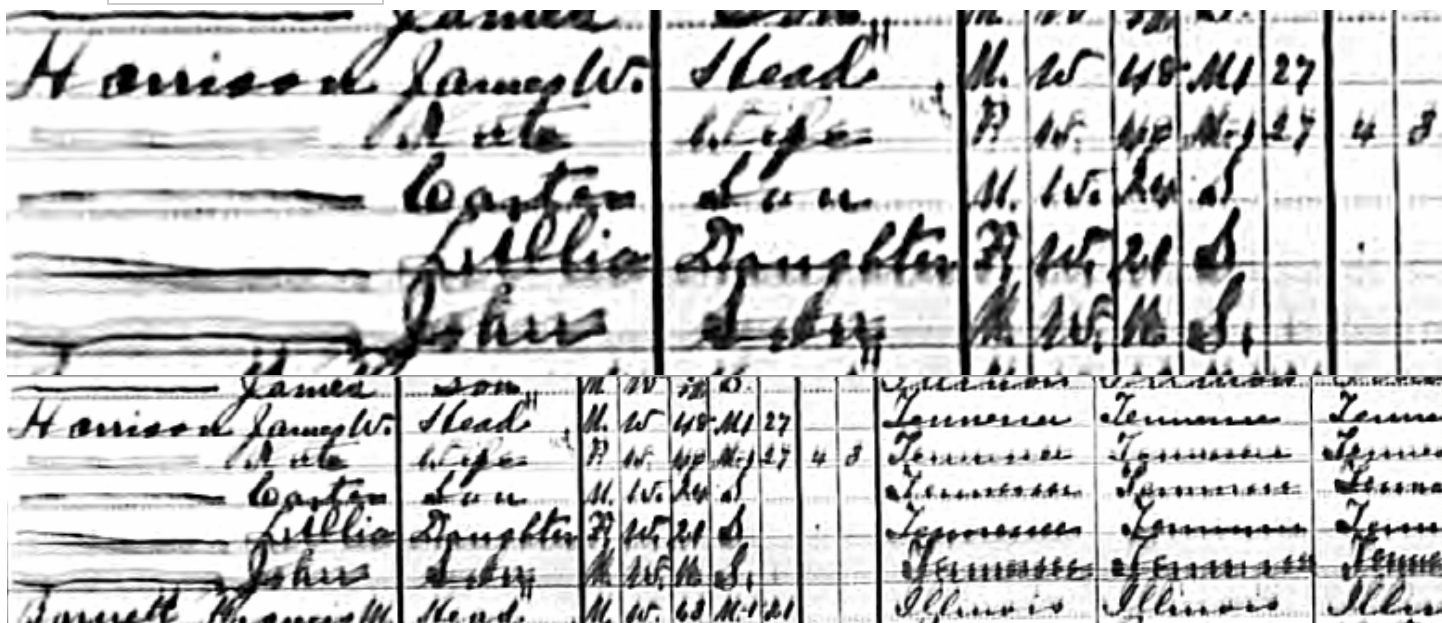 James Son M. W S.
Harrison James W. Head M. W 48 M1 27
Kate Wife F W. 48 M-1 27 4 3
Carter Son M. W. 24 S
Lillia Daughter F. W. 21 S
John Son M. W. S.
James Son M. W S. Illinois Illinois
Harrison James W. Head M. W 48 M1 27 Tennessee Tennessee Tenne
Kate Wife F W. 48 M-1 27 4 3 Tennessee Tennessee Tennes
Carter Son M. W. 24 S Tennessee Tennessee Tenne
Lillia Daughter F. W. 21 S Tennessee Tennessee Tenn
John Son M. W. S. Tennessee Tennessee Tenne
Francis M. Head M. W. 63 M-1 21 Illinois Illinois Illin